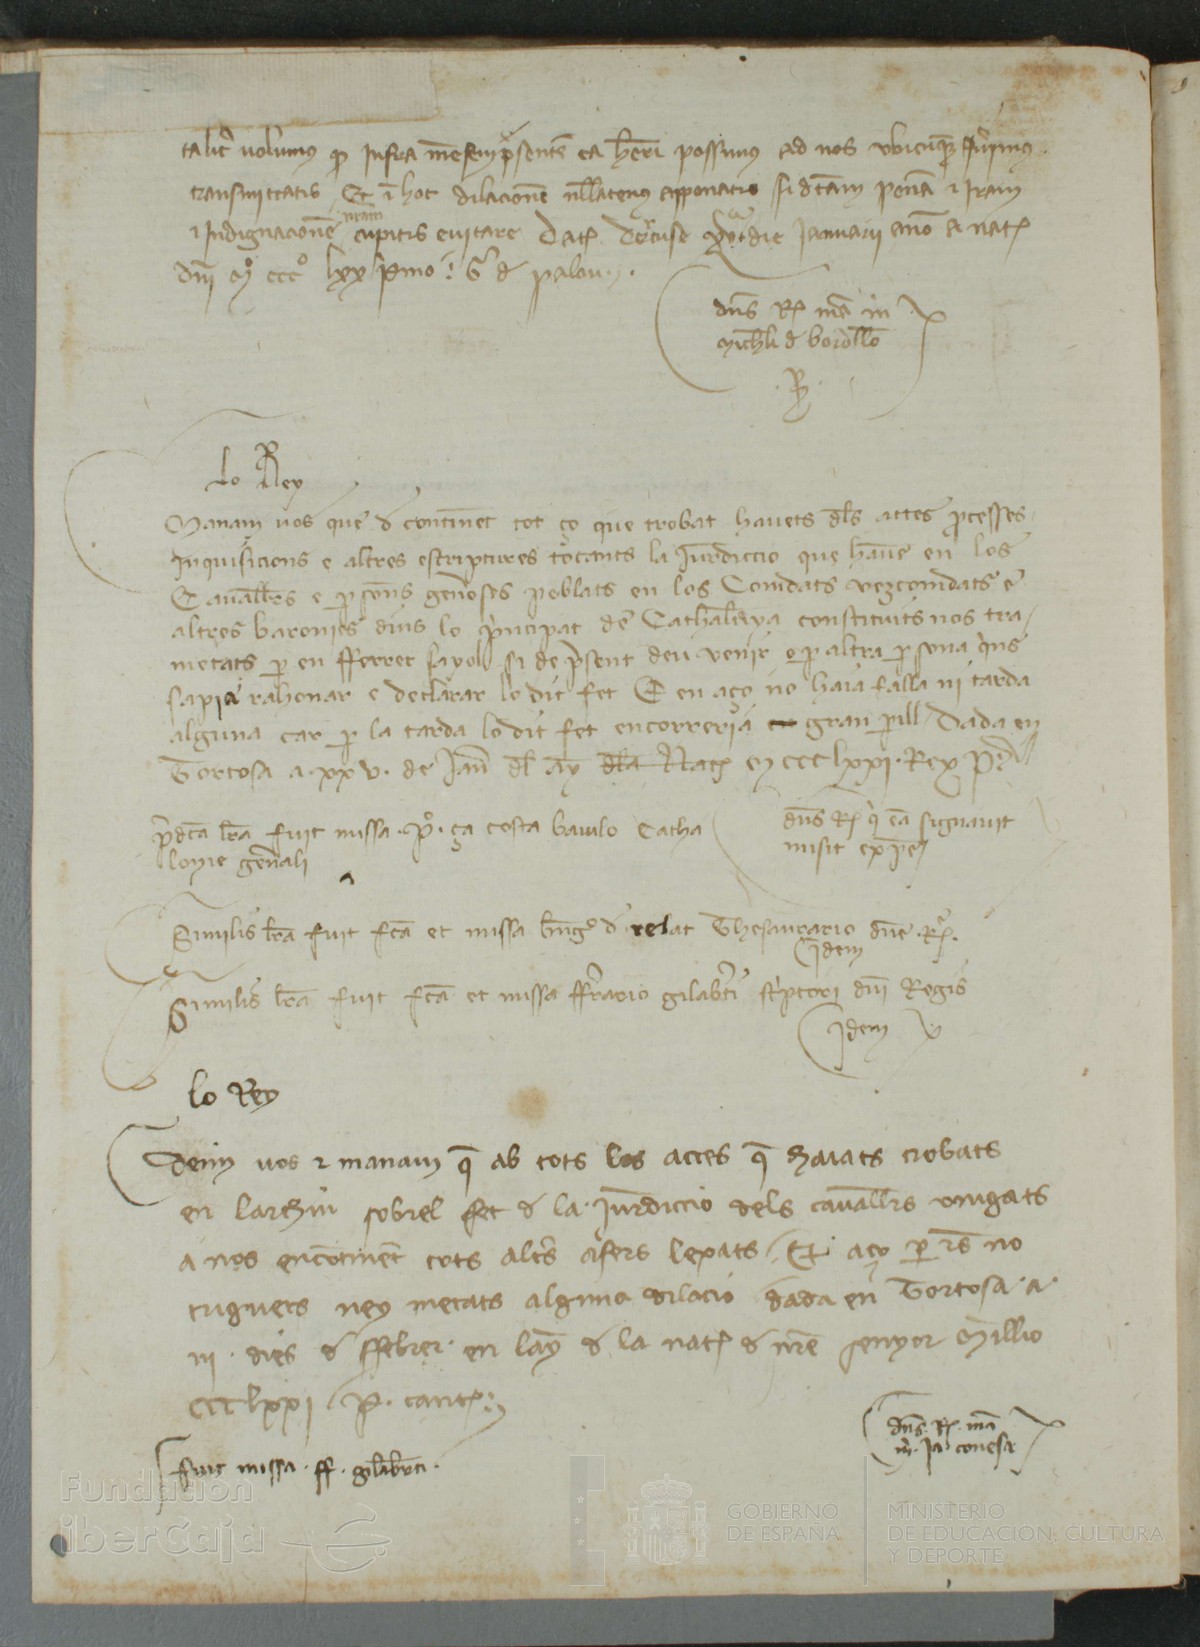 taliter volumus qd infra mensem psentem ea heri possimus ad nos ubicumq fuimus
transmittatis Et i hoc dilacione nllatenus apponatis si dcam penam & iram
& indignacione nram cupitis evitare Dat Dertuse die Januarii anno a nat
dni Mº cccº lxx pmo G d palou
dns Rex ma m
Michli d bordello
P
lo Rey
Manam vos que d continent tot ço que trobat havets dls actes pcesses
inquisicions e altres escriptures tocants la Jurdiccio que haue en los
Cauallers e psons generoses poblats en los Comdats vezcomdats e
altres baronies dins lo principat de Cathalunya constituits nos tra
metats p en fferrer sayol si de psent deu venir o p altra psona quis
sapia rahonar e declarar lo dit fet E en aço no haia falla ni tarda
alguna car p la tarda lo dit fet encorreria gran pill Dada en
Tortosa a xxv de Jan dl any dla Nat M cccclxxi Rex P
pdca lra fuit missa pº ça costa baiulo Catha
lonie genali
dns Rex q ea signavit
misit expe
Similis lra fuit fca et missa bngº d relat Thesaurario dne R
Idem
Similis lra fuit fca et missa fferrario gilabti sciptori dni Regis
Idem
lo Rey
Deim vos & manam q ab tots los actes q haiats trobats
en larxiu sobrel fet d la Jurdiccio dels cauallers vingats
a nos encotinet tots altrs afers lexats Et aço p res no
tuguets ney metats alguna dilacio dada en Tortosa a
iii dies d ffebrer en lay d la nat d nre senyor Millio
CCClxxi P cant
dns R ma
m Ja conesa
ffuit missa ff gilabti
Fundación
iberCaja
GOBIERNO
DE ESPAÑA
MINISTERIO
DE EDUCACIÓN, CULTURA
Y DEPORTE